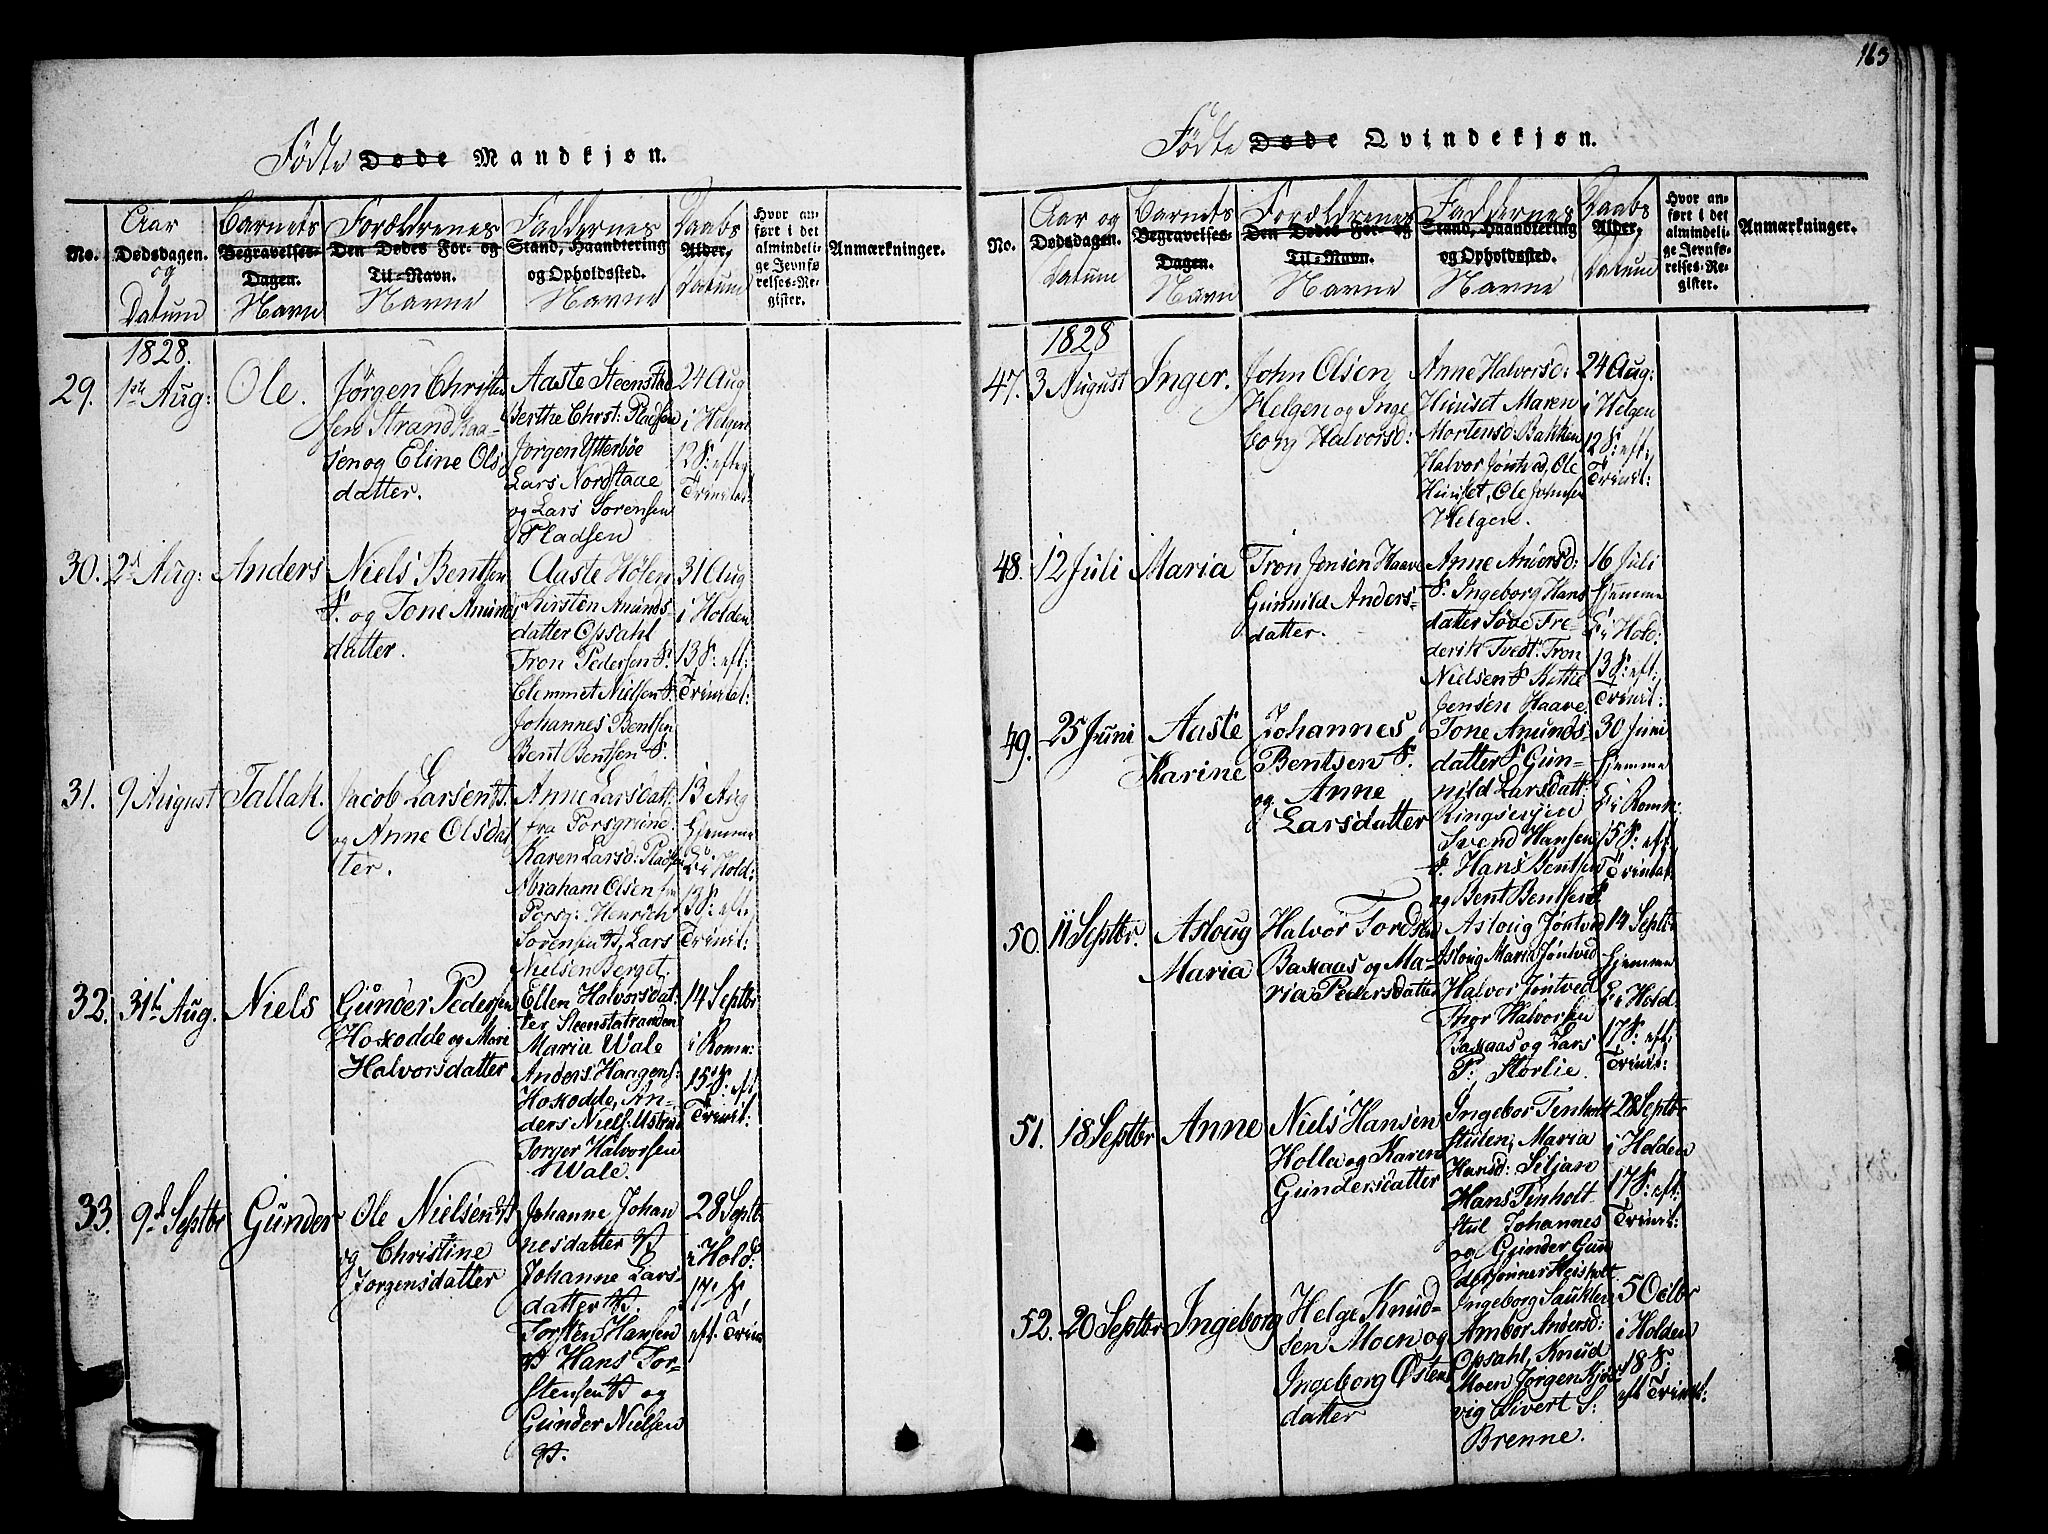 163
Fødte Døde Mandkjøn.
No.
Aar
Dødsdagen.
og
Datum
Barnets
Begravelses-
Dagen.
Navn
Forældrenes
Den Dødes For- og
Til-Navn.
Navne
Faddernes
Stand, Haandtering
og Opholdssted.
Navne
Daabs
Alder.
Datum
Hvor an-
ført i det
almindeli-
ge Jevnfø
relses-Re-
gister.
Anmærkninger.
1828.
29.
1ste Aug:
Ole.
Jørgen Christen
sen Strand
sen og Eline Ols
datter.
Aaste Steenstad
Berthe Christ: Pladsen
Jørgen Ytterbøe
Lars Nordstaae
og Lars Sørensen
Pladsen
24 Aug
i Helgen
12 S: efter
Trinitat:
30.
2d Aug:
Anders
Niels Bentsen
S. og Tone Amunds
datter.
Aaste Holen
Kirsten Amunds-
datter Opsahl
Tron Pedersen S.
Clemmet Nielsen S.
Johannes Bentsen
Bent Bentsen S.
31 Aug
i Holden
13 S: eft:
Trinitat:
31.
9 August
Tallak.
Jacob Larsen
og Anne Olsdat
ter.
Anne Larsdatt:
fra Porsgrund.
Karen Larsd: Pladsen
Abraham Olsen fra
Porsg: Henrich
Sørensen Lars
Nielsen Berget.
13 Aug
hjemme
i Hold:
13 S: eft:
Trinit:
32.
31te Aug.
Niels
Gunder Pedersen
Hoxodde og Mari
Halvorsdatter
Ellen Halvorsdat:
ter Steenstadtranden
Maria Wale
Anders Haagens:
Hoxodde, An-
ders Niels:
Jorger Halvorsen
Wale.
14 Septbr
i Romn:
15 S: eft
Trinit:
33.
9d Septbr
Gunder
Ole Nielsen
og Christine
Jorgensdatter
Johanne Johan
nesdatter
Johanne Lars-
datter
Torsten Hansen
Hans Tor-
stensen og
Gunder Nielsen
28 Septbr
i Hold:
17 S.
eft. Trin
Fødte Døde Qvindekjøn.
No.
Aar og
Dødsdagen.
Datum
Barnets
Begravelses-
Dagen.
Navn
Forældrenes
Den Dødes For- og
Til-Navn.
Navne
Faddernes
Stand, Haandtering
og Opholdssted.
Navne
Daabs
Alder.
Datum
Hvor an-
ført i det
almindeli-
ge Jevnfø-
relses-Re-
gister.
Anmærkninger.
1828
47.
3 August
Inger.
John Olsen
Helgen og Inge
borg Halvorsd:
Anne Halvorsd:
Huuset Maren
Mortensd: Bakken
Halvor Jøntved, Ole
Huuset, Ole Johnsen
Helgen.
24 Aug:
i Helgen
12 S: eft:
Trinit:
48.
12 Juli
Maria
Tron Jensen Haave
Gunnild Anders-
datter.
Anne Andersd:
S. Ingeborg Hans
datter Søve Fre-
derik Tvedt: Tron
Nielsen S. Kittie
Jensen Haave.
16 Juli
hjemme
i Hold:
13 S: eft.
Trinit:
49.
25 Juni
Aaste
Karine
Johannes
Bentsen S.
og Anne
Larsdatter
Tone Amunds-
datter S. Gun-
nild Larsdatt:
Ringsejen
Svend Hansen
S. Hans Bentsen
og Bent Bentsen S
30 Juni
hjemme
i Romn:
15 S: eft
Trinitat:
50.
11 Septbr.
Asloug
Maria
Halvor Tordsen
Baxaas og Ma-
ria Pedersdatter
Asloug Jøntved
Asloug Maria Jøntved
Halvor Jøntved
Thor Halvorsen
Baxaas og Lars
P: Storlie.
14 Septbr
hjemme
i Hold:
17 S: eft:
Trinit:
51.
18 Septbr
Anne
Niels Hansen
Holla og Karen
Gundersdatter
Ingebor Tenholt
stulen, Maria
Hansd: Siljan
Hans Tenholt
stul Johannes
og Gunder Gun
dersønner Heisholt
28 Septbr
i Holden
17 S: eft:
Trinit:
52.
20 Septbr
Ingeborg
Helge Knud-
sen Moen og
Ingeborg Østens
datter
Ingeborg Sauklen
Ambor Andersd:
Opsahl, Knud
Moen Jørgen Kjös
vig Sivert S:
Brenne.
5 Octbr
i Holden
18 S.
eft Trinit: